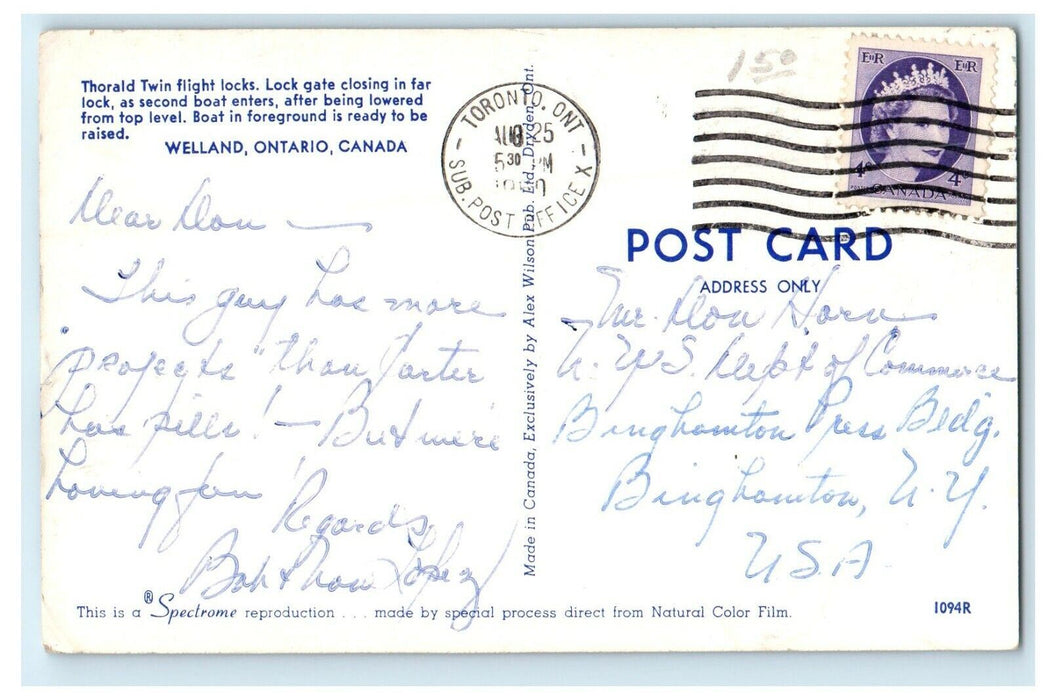 Thorald Twin flight locks. Lock gate closing in far
lock, as second boat enters, after being lowered
from top level. Boat in foreground is ready to be
raised.
WELLAND, ONTARIO, CANADA
Dear Don —
This guy has more
"projects" than Carter
has pills! — But we're
having fun!
Regards,
Bob & Lopez
TORONTO, ONT
AUG 25
5 30 PM
SUB. POST OFFICE X
Made in Canada, Exclusively by Alex Wilson Pub. Ltd., Dryden, Ont.
1 50
E R E R
4¢ 4¢
CANADA
POST CARD
ADDRESS ONLY
Mr. Don Horn
N.Y.S. Dept of Commerce
Binghamton Press Bldg.
Binghamton, N.Y.
USA
This is a ® Spectrome reproduction . . . made by special process direct from Natural Color Film.
1094R